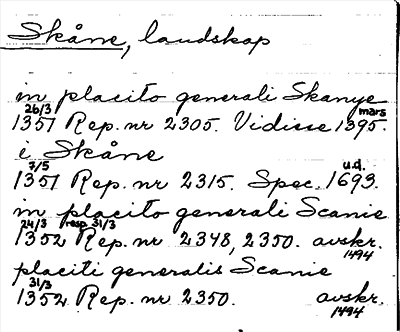 Skåne, landskap
in placito generali Skanye
26/3 mars
1351 Rep. nr 2305. Vidisse 1395.
i Skåne
7/5 u.d.
1351 Rep. nr 2315. Spec. 1693.
in placito generali Scanie
24/3 resp 31/3
1352 Rep. nr 2348, 2350. avskr.
1494
placiti generalis Scanie
31/3
1352 Rep. nr 2350. avskr.
1494